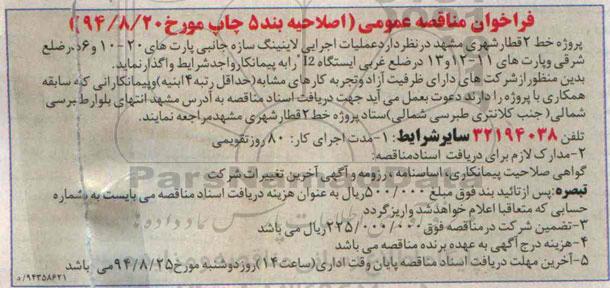 فراخوان مناقصه عمومی (اصلاحیه بند۵ چاپ مورخ ۹۴/۸/۲۰)
پروژه خط ۲ قطار شهری مشهد در نظر دارد عملیات اجرایی لاینینگ سازه جانبی پارت های ۲۰-۱۰ و ۶ در ضلع
شرقی و پارت های ۱۱-۱۲ و ۱۳ در ضلع غربی ایستگاه I2 را به پیمانکار واجد شرایط واگذار نماید.
بدین منظور از شرکت های دارای ظرفیت آزاد و تجربه کار های مشابه (حداقل رتبه ۴ ابنیه) و پیمانکارانی که سابقه
همکاری با پروژه را دارند دعوت بعمل می آید جهت دریافت اسناد مناقصه به آدرس مشهد انتهای بلوار طبرسی
شمالی (جنب کلانتری طبرسی شمالی) ستاد پروژه خط ۲ قطار شهری مشهد مراجعه نمایند.
تلفن ۳۲۱۹۴۰۳۸ سایر شرایط: ۱-مدت اجرای کار: ۸۰ روز تقویمی
۲-مدارک لازم برای دریافت اسناد مناقصه:
گواهی صلاحیت پیمانکاری، اساسنامه، رزومه و آگهی آخرین تغییرات شرکت
تبصره: پس از تائید بند فوق مبلغ ۵۰۰/۰۰۰ ریال به عنوان هزینه دریافت اسناد مناقصه می بایست به شماره
حسابی که متعاقبا اعلام خواهد شد واریز گردد
۳-تضمین شرکت در مناقصه فوق ۲۲۵/۰۰۰/۰۰۰ ریال می باشد
۴-هزینه درج آگهی به عهده برنده مناقصه می باشد
۵-آخرین مهلت دریافت اسناد مناقصه پایان وقت اداری (ساعت ۱۴) روز دوشنبه مورخ ۹۴/۸/۲۵ می باشد
۹۴۳۵۸۶۲۱/م